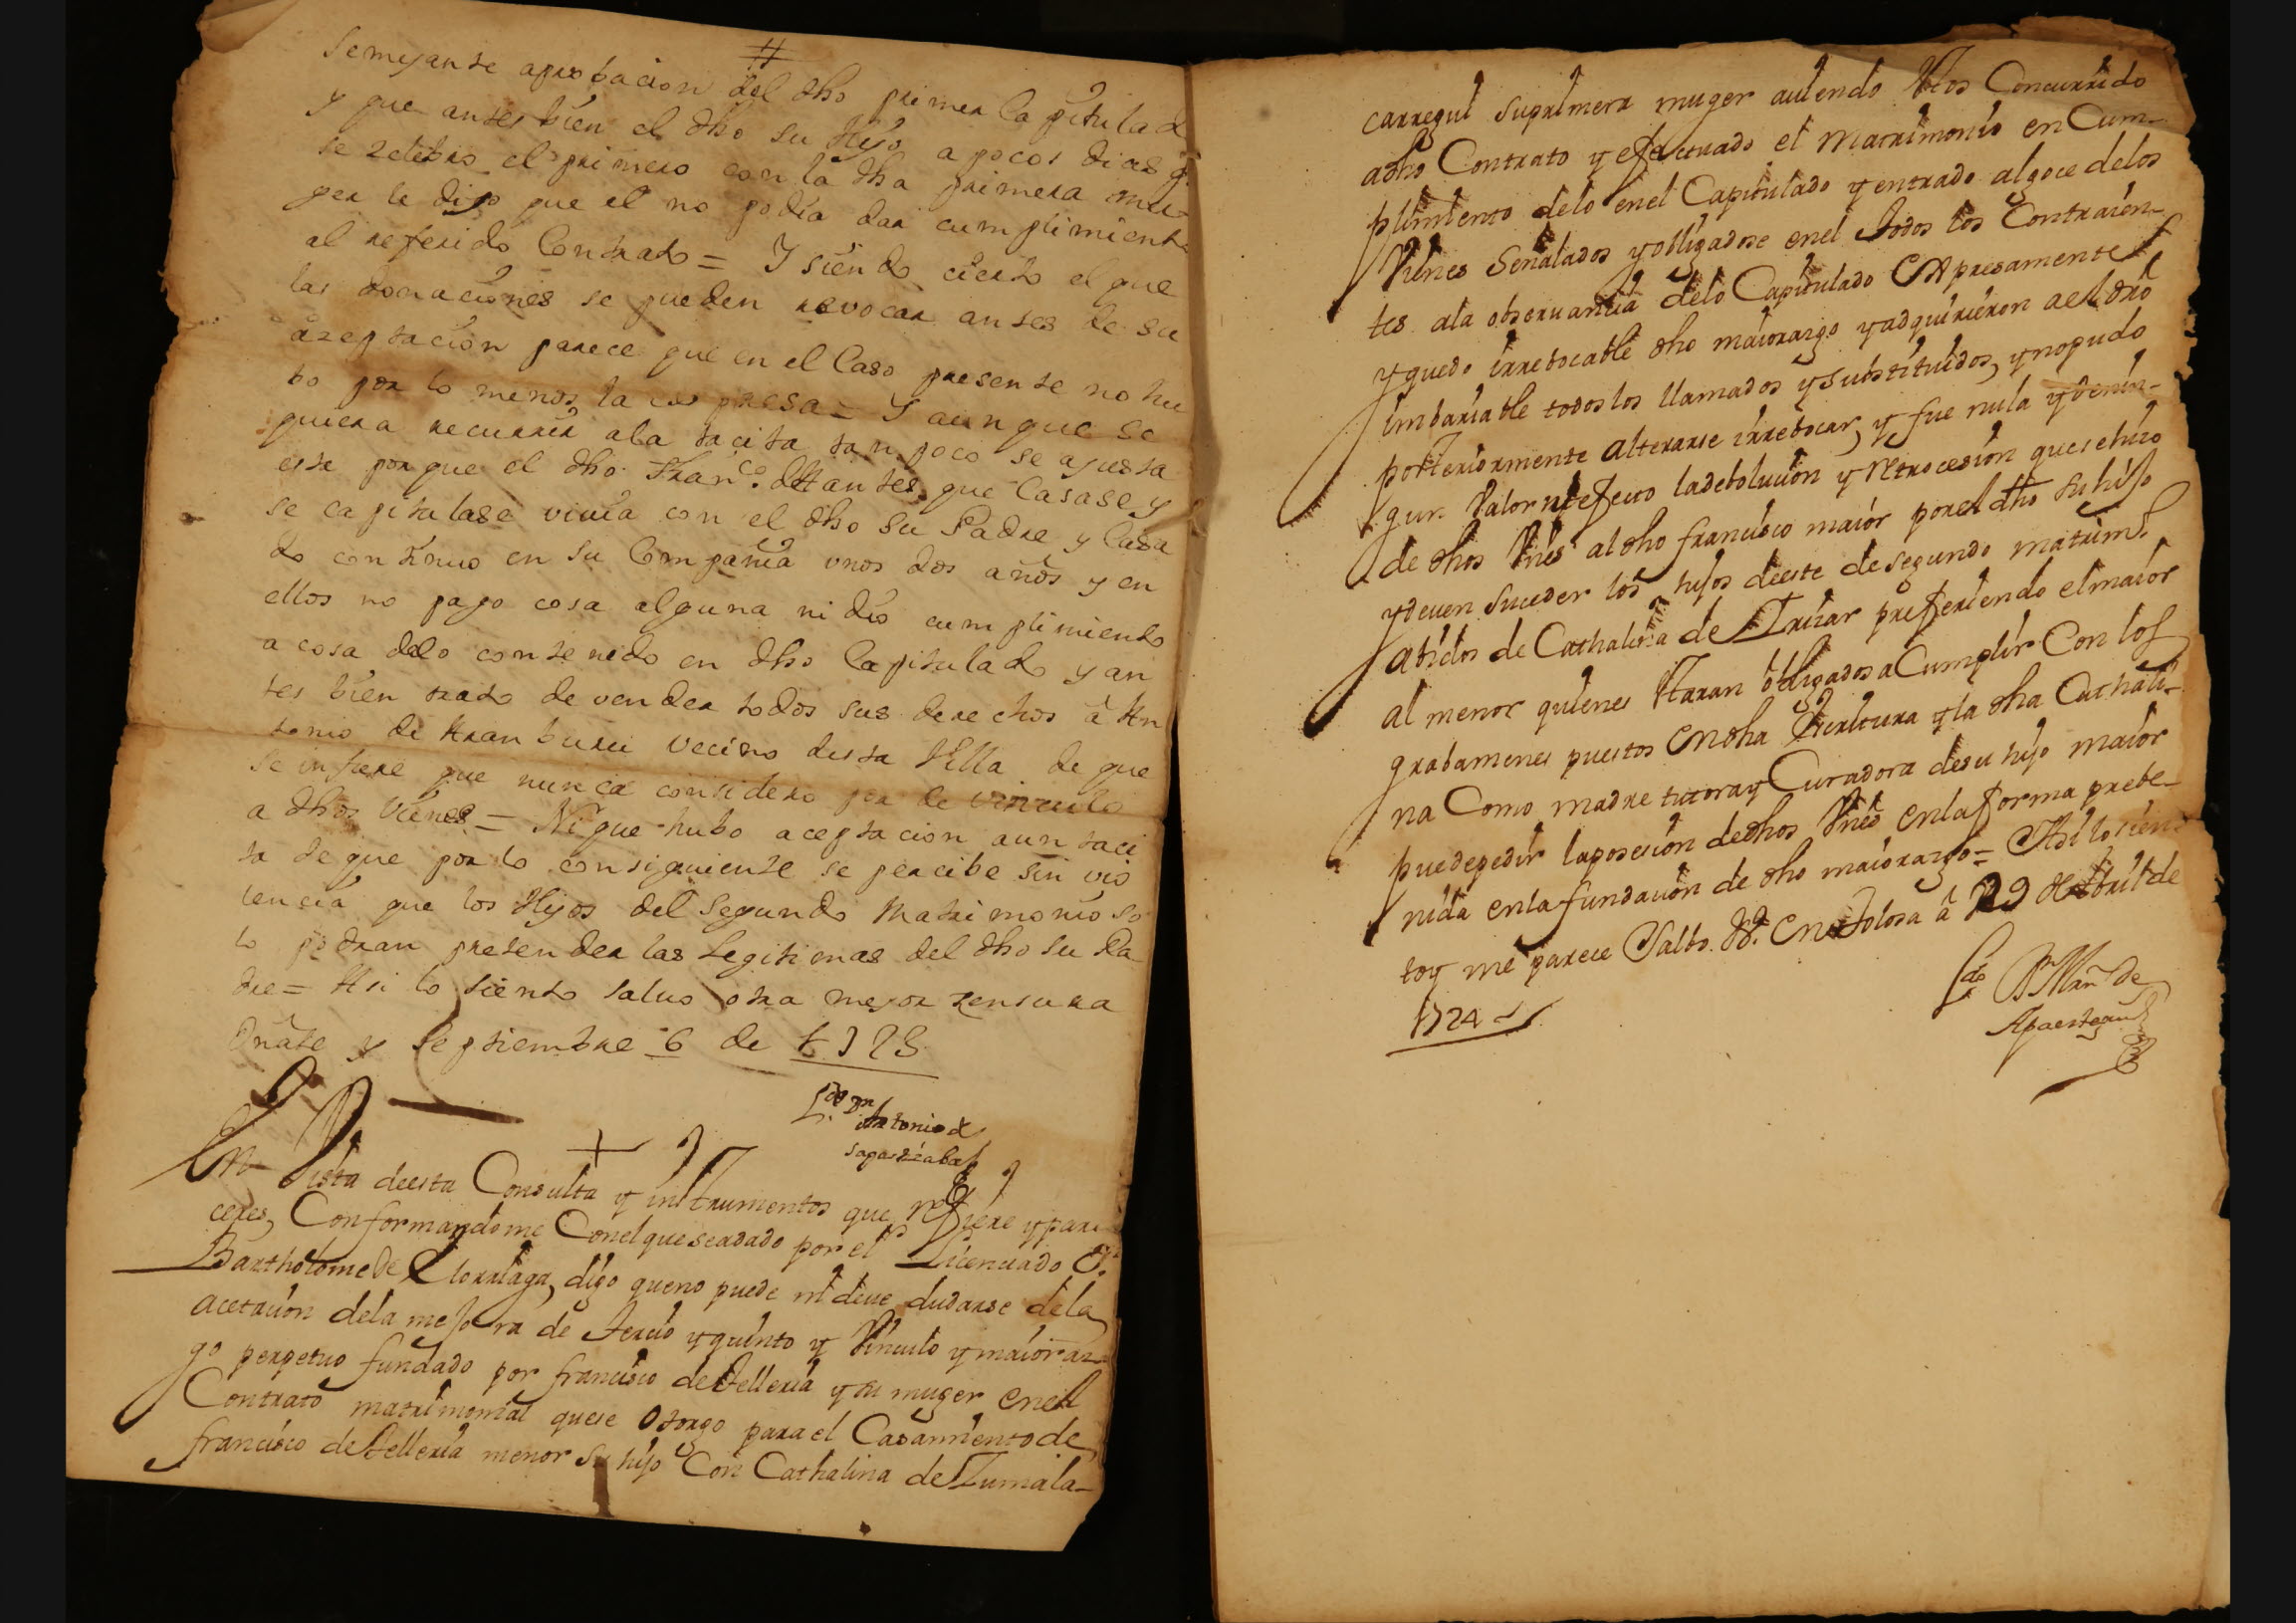 semejante aprobacion del dho primer Capitulad
y que antes bien el dho su Hijo a pocos dias q.
se zelebro el primero con la dha primera mu-
ger le dijo que el no podia dar cumplimiento
al referido Contrato = Y siendo cierto el que
las donaciones se pueden revocar antes de su
azeptacion parece que en el Caso presente no hu
bo por lo menos la expresa = Y aunque se
quiera recurrir ala tacita tampoco se ajusta
esta porque el dho Fran.co antes que Casase y
se capitulase vivia con el dho su Padre y Casa
do continuo en su Compañia unos dos años y en
ellos no pago cosa alguna ni dio cumplimiento
a cosa delo contenido en dho Capitulado y an
tes bien trato de vender todos sus derechos â An
tonio de Aramburu vecino desta Villa de que
se infiere que nunca considero ser de vinculo
a dhos vienes = Ni que hubo aceptacion aun taci
ta de que por lo consiguiente se percibe sin vio
lencia que los Hijos del Segundo Matrimonio so
lo podran pretender las Legitimas del dho su Pa
dre = Asi lo siento salvo otra mejor zensura
Oñate y Septiembre 6 de 1723
L.do D.n Antonio d
Sagastizabal
En Vista deesta Consulta y instrumentos que refiere y pare
ceres, Conformandome Conel que seadado por el Licenciado D.
Bartholome de Elorriaga, digo queno puede ni deve dudarse dela
acetacion dela mejora de tercio y quinto y Vinculo y maioraz
go perpetuo fundado por francisco de Telleria y su muger enel
Contrato matrimonial quese otorgo para el Casamiento de
francisco de Telleria menor su hijo Con Cathalina de Zumala-
carregui suprimera muger aviendo Ellos Concurrido
adho Contrato y efectuado el Matrimonio en Cum-
plimiento delo enel Capitulado y entrado al goce delos
Vienes Señalados y obligadose enel todos los Contraien-
tes ala observancia delo Capitulado Expresamente
y quedo irrebocable dho maiorazgo y adquirieron ael dro
imbariable todos los llamados y substituidos, y no pudo
posteriormente alterarse irrebocar, y fue nula y denin-
gun Valor niefecto ladebolucion y Retrocesion quesehizo
de dhos Vnes al dho francisco maior porel dho su hijo
ydeven suceder los hijos deeste de segundo matrim.o
abidos de Cathalina de Irizar prefiriendo elmaior
al menor quienes Haran obligados a Cumplir Con los
grabamenes puestos en dha Escritura y la dha Cathali-
na Como madre tutora y Curadora desu hijo maior
puedepedir laposesion dedhos Vnes enlaforma prebe-
nida enlafundacion de dho maiorazgo = Asi lo sien
toy me parece Salbo &.a En Tolosa â 29 de Abril de
1724
L.do Mrn de
Apaestegui